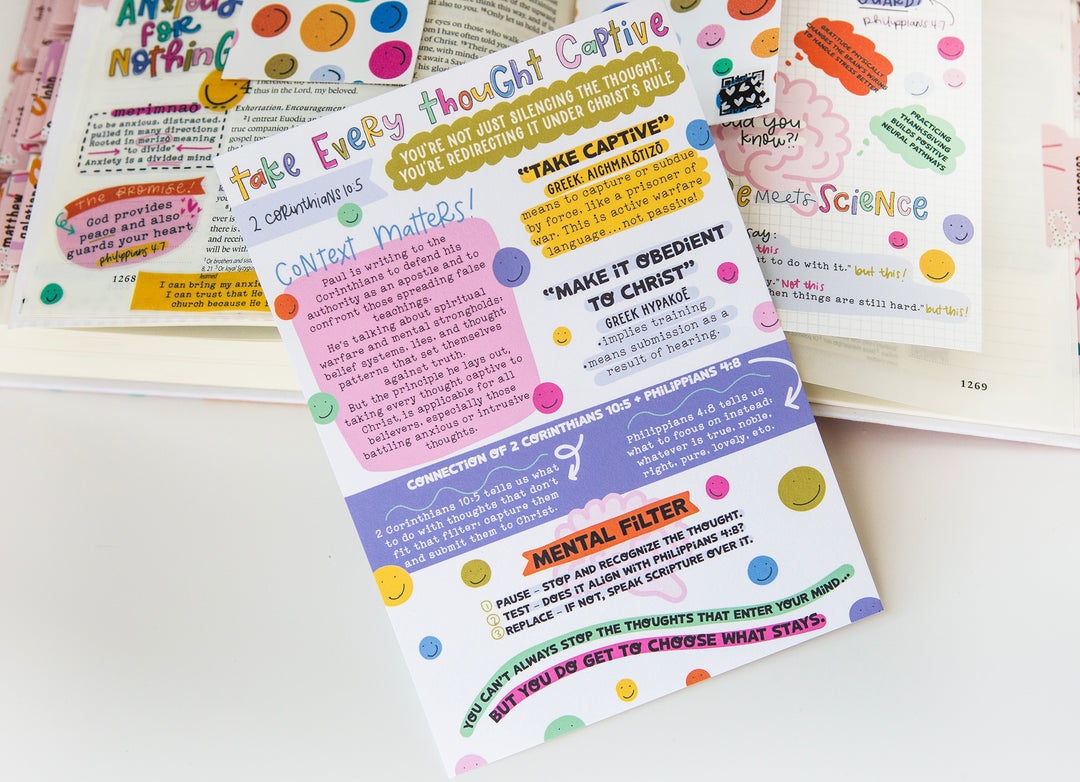 Take Every Thought Captive
2 Corinthians 10:5
YOU'RE NOT JUST SILENCING THE THOUGHT:
YOU'RE REDIRECTING IT UNDER CHRIST'S RULE
Context Matters!
Paul is writing to the
Corinthians to defend his
authority as an apostle and to
confront those spreading false
teachings.
He's talking about spiritual
warfare and mental strongholds:
belief systems, lies, and thought
patterns that set themselves
against truth.
But the principle he lays out,
taking every thought captive to
Christ, is applicable for all
believers, especially those
battling anxious or intrusive
thoughts.
"TAKE CAPTIVE"
GREEK: AIGHMALŌTIZŌ
means to capture or subdue
by force, like a prisoner of
war. This is active warfare
language...not passive!
"MAKE IT OBEDIENT
TO CHRIST"
GREEK HYPAKOĒ
•implies training
•means submission as a
result of hearing.
CONNECTION OF 2 CORINTHIANS 10:5 + PHILIPPIANS 4:8
2 Corinthians 10:5 tells us what
to do with thoughts that don't
fit that filter: capture them
and submit them to Christ.
Philippians 4:8 tells us
what to focus on instead:
whatever is true, noble,
right, pure, lovely, etc.
MENTAL FILTER
1 PAUSE - STOP AND RECOGNIZE THE THOUGHT.
2 TEST - DOES IT ALIGN WITH PHILIPPIANS 4:8?
3 REPLACE - IF NOT, SPEAK SCRIPTURE OVER IT.
YOU CAN'T ALWAYS STOP THE THOUGHTS THAT ENTER YOUR MIND...
BUT YOU DO GET TO CHOOSE WHAT STAYS.
ANXIOUS
FOR
NOTHING
merimnaō
to be anxious, distracted,
pulled in many directions
Rooted in merizō meaning
"to divide"
Anxiety is a divided mind
THE PROMISE!
God provides
peace and also
guards your heart
philippians 4:7
1268
learned
I can bring my anxi
I can trust that He
church because He i
Therefore, my
thus in the Lord, my beloved.
Exhortation, Encouragement
4
I entreat Euodia an
true companion
matthew
philippians 4:7
GRATITUDE PHYSICALLY
CHANGES THE BRAIN'S WIRING
TO HANDLE STRESS BETTER
PRACTICING
THANKSGIVING
BUILDS POSITIVE
NEURAL PATHWAYS
you
know?!
Meets Science
say:
this
to do with it." but this!
Not this
hen things are still hard." but this!
1269